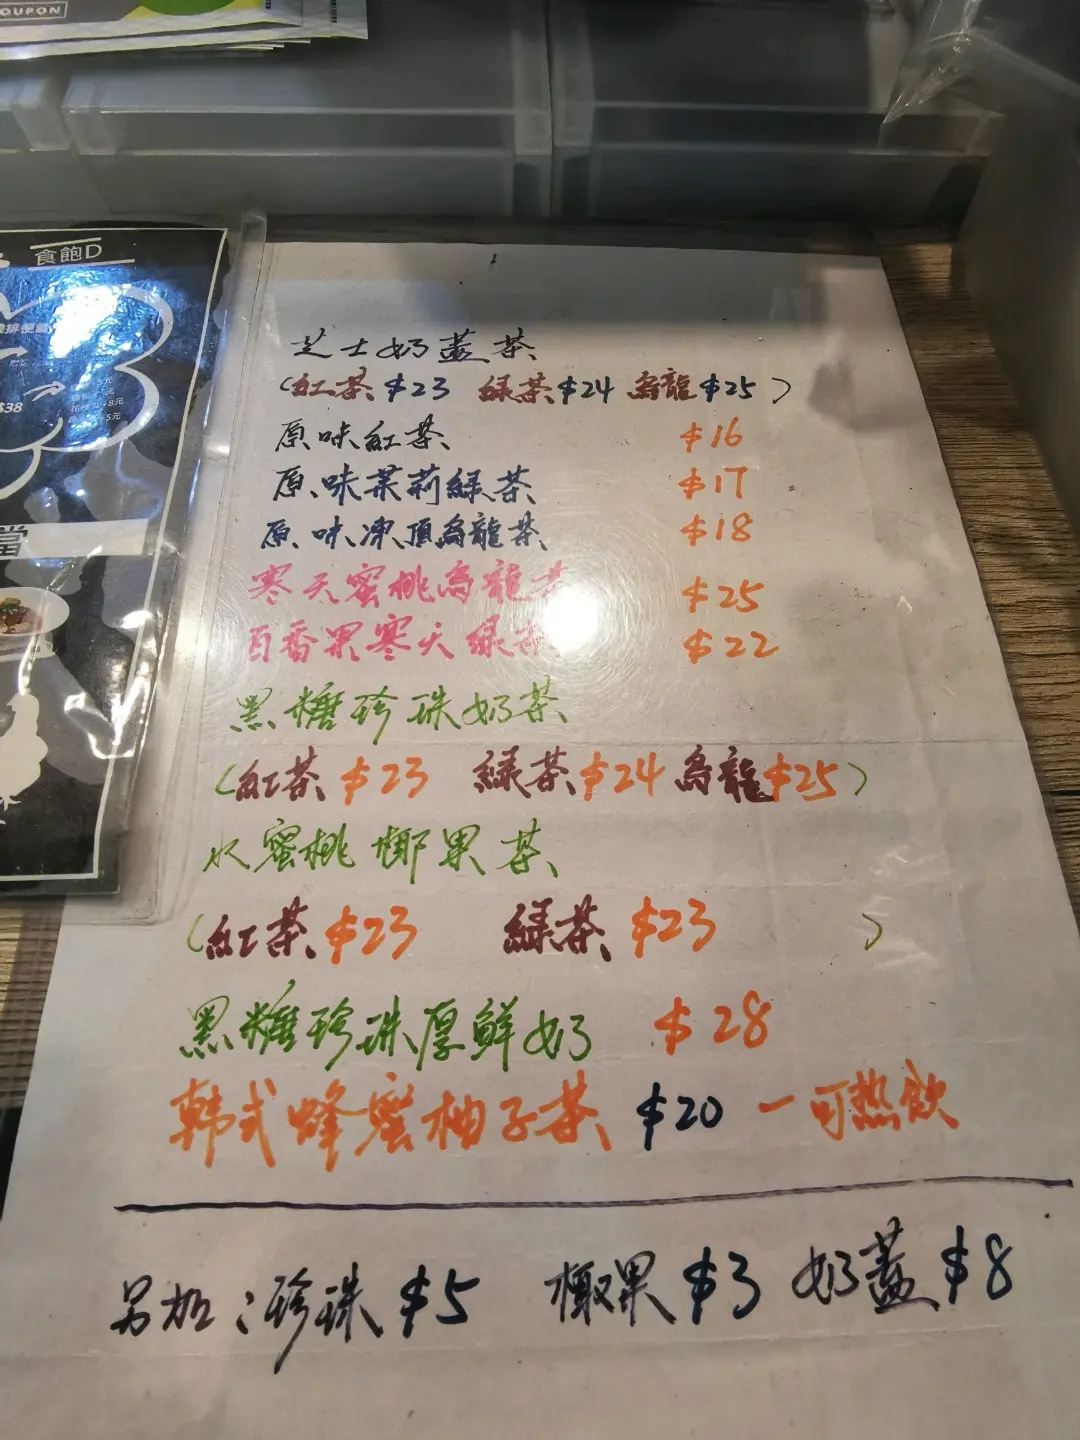 OUPON
食飽D
排便當
$38
當
芝士奶蓋茶
(紅茶$23 綠茶$24 烏龍$25)
原味紅茶 $16
原味茉莉綠茶 $17
原味凍頂烏龍茶 $18
寒天蜜桃烏龍茶 $25
百香果寒天綠茶 $22
黑糖珍珠奶茶
(紅茶$23 綠茶$24 烏龍$25)
水蜜桃椰果茶
(紅茶$23 綠茶$23 )
黑糖珍珠厚鮮奶 $28
韩式蜂蜜柚子茶 $20 一可热飲
另加:珍珠$5 椰果$3 奶蓋$8